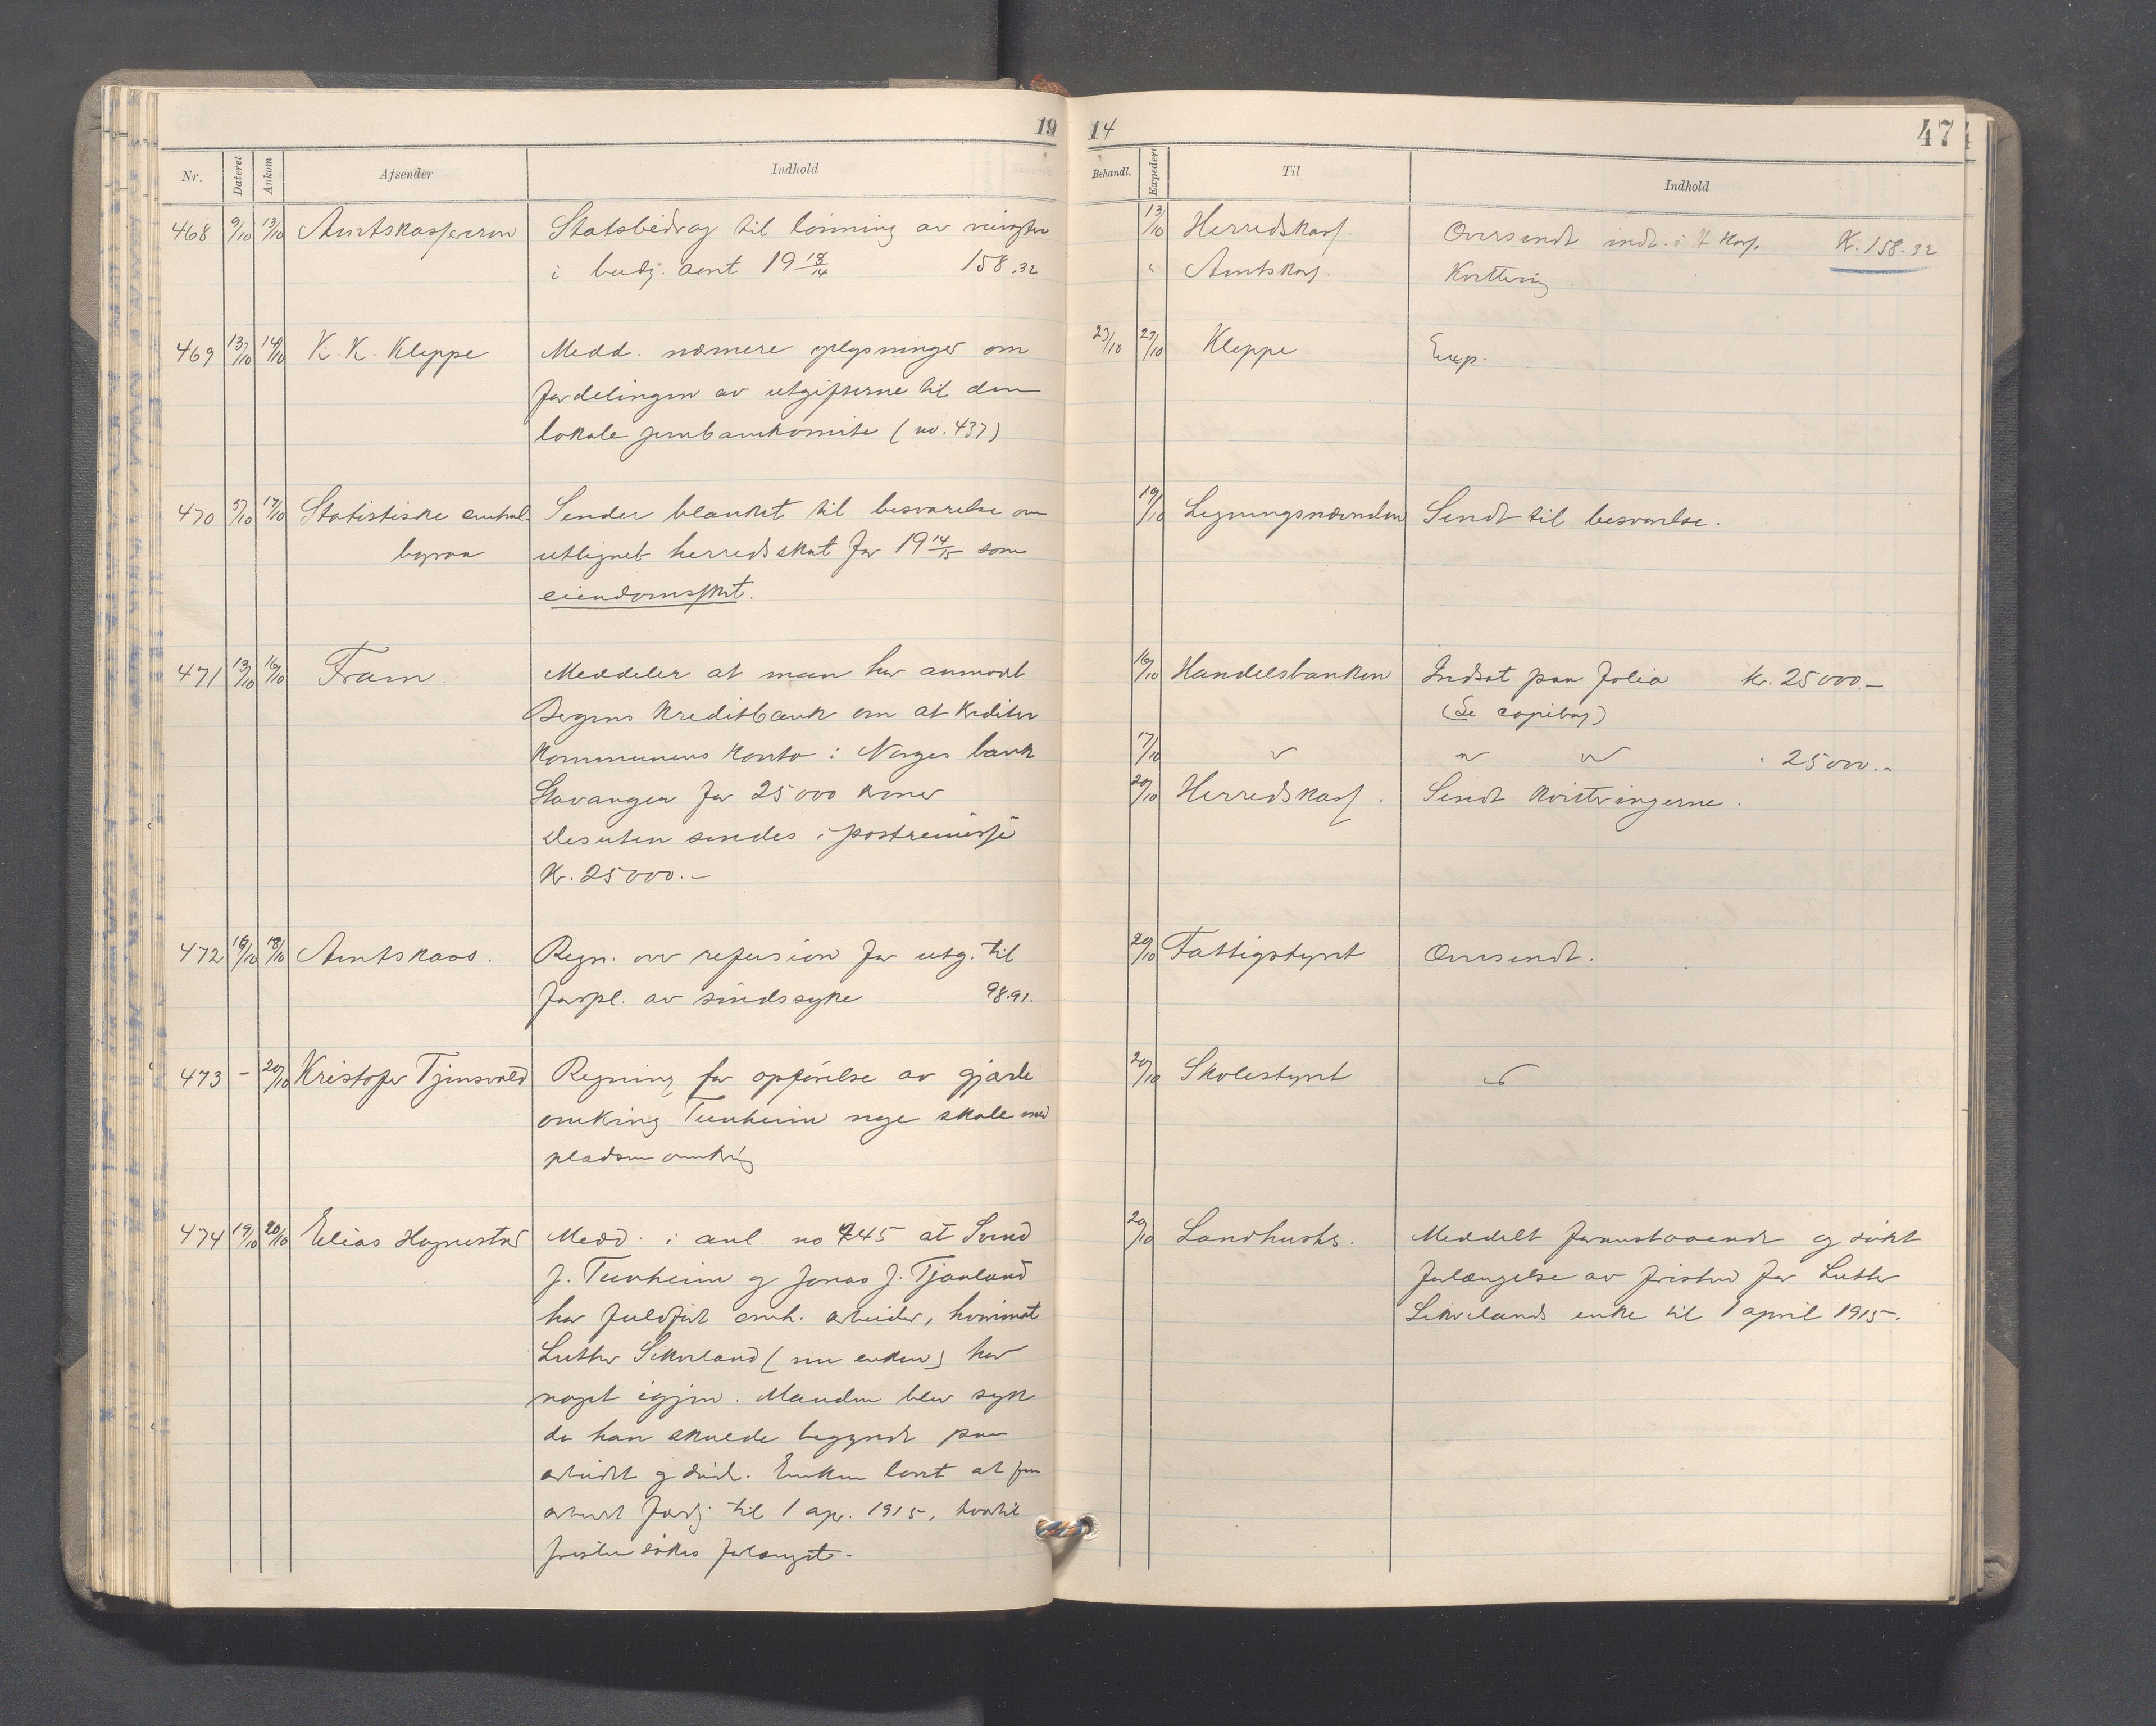 19
Nr. Dateret Ankom Afsender Indhold
468 9/10 13/10 Amtskassereren Statsbidrag til lønning av
i budj. aaret 19 13/14 158.32
469 13/10 14/10 K. K. Kleppe Medd. nærmere oplysninger om
fordelingen av utgifterne til den
lokale jernbanekomite (no. 437)
470 5/10 17/10 Statistiske central- Sender blanket til besvarelse om
byraa utlignet herredsskat for 19 14/15 som
eiendomsskat.
471 13/10 16/10 Fram Meddeler at man har anmodet
Bergens Kreditbank om at kreditere
Kommunens Konto i Norges bank
Stavanger for 25000 kroner
Desuten sendes i postremisse
Kr. 25000.-
472 16/10 18/10 Amtskass. Regn. over refusion for utg. til
forpl. av sindssyke 98.91.
473 - 20/10 Kristofer Tjensvold Regning for opførelse av gjærde
omkring Tunheim nye skole med
pladsen omkring
474 19/10 20/10 Elias Hognestad Medd. i anl. no 445 at Svend
J. Tunheim og Jonas J. Tjaaland
har fuldført omh. arbeider, hvorimot
Luther Sikveland (nu enken) har
noget igjen. Manden blev syk
da han skulde begyndt paa
arbeidet og døde. Enken lovet at faa
arbeidet færdig til 1 apr. 1915, hvortil
fristen søkes forlænget.
14 47
Behandl. Expedert Til Indhold
13/10 Herredskass. Oversendt indt. i H. kass. K. 158.32
" Amtskass. Kvittering.
27/10 27/10 Kleppe Exp.
19/10 Ligningsnævnden Sendt til besvarelse.
16/10 Handelsbanken Indsat paa folio kr. 25000.-
(Se copibog)
17/10 " " " " 25000.-
20/10 Herredskass. Sendt kvitteringerne.
20/10 Fattigstyret Oversendt.
20/10 Skolestyret "
20/10 Landhush. Meddelt foranstaaende og søkt
forlængelse av fristen for Luther
Sikvelands enke til 1 april 1915.